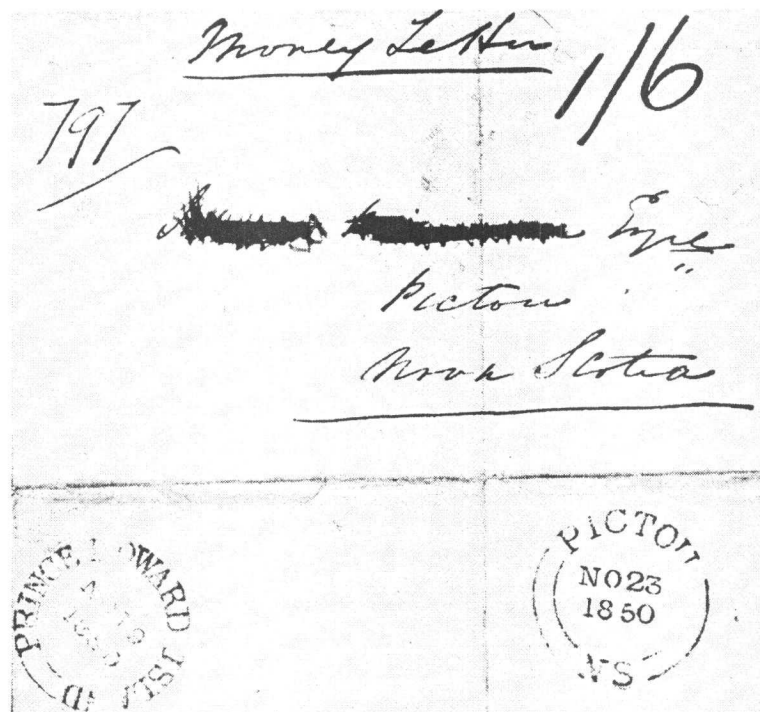 Money Letter
1/6
797
Esqre
Pictou
Nova Scotia
PRINCE EDWARD ISLAND
PICTOU
NO 23
1850
NS